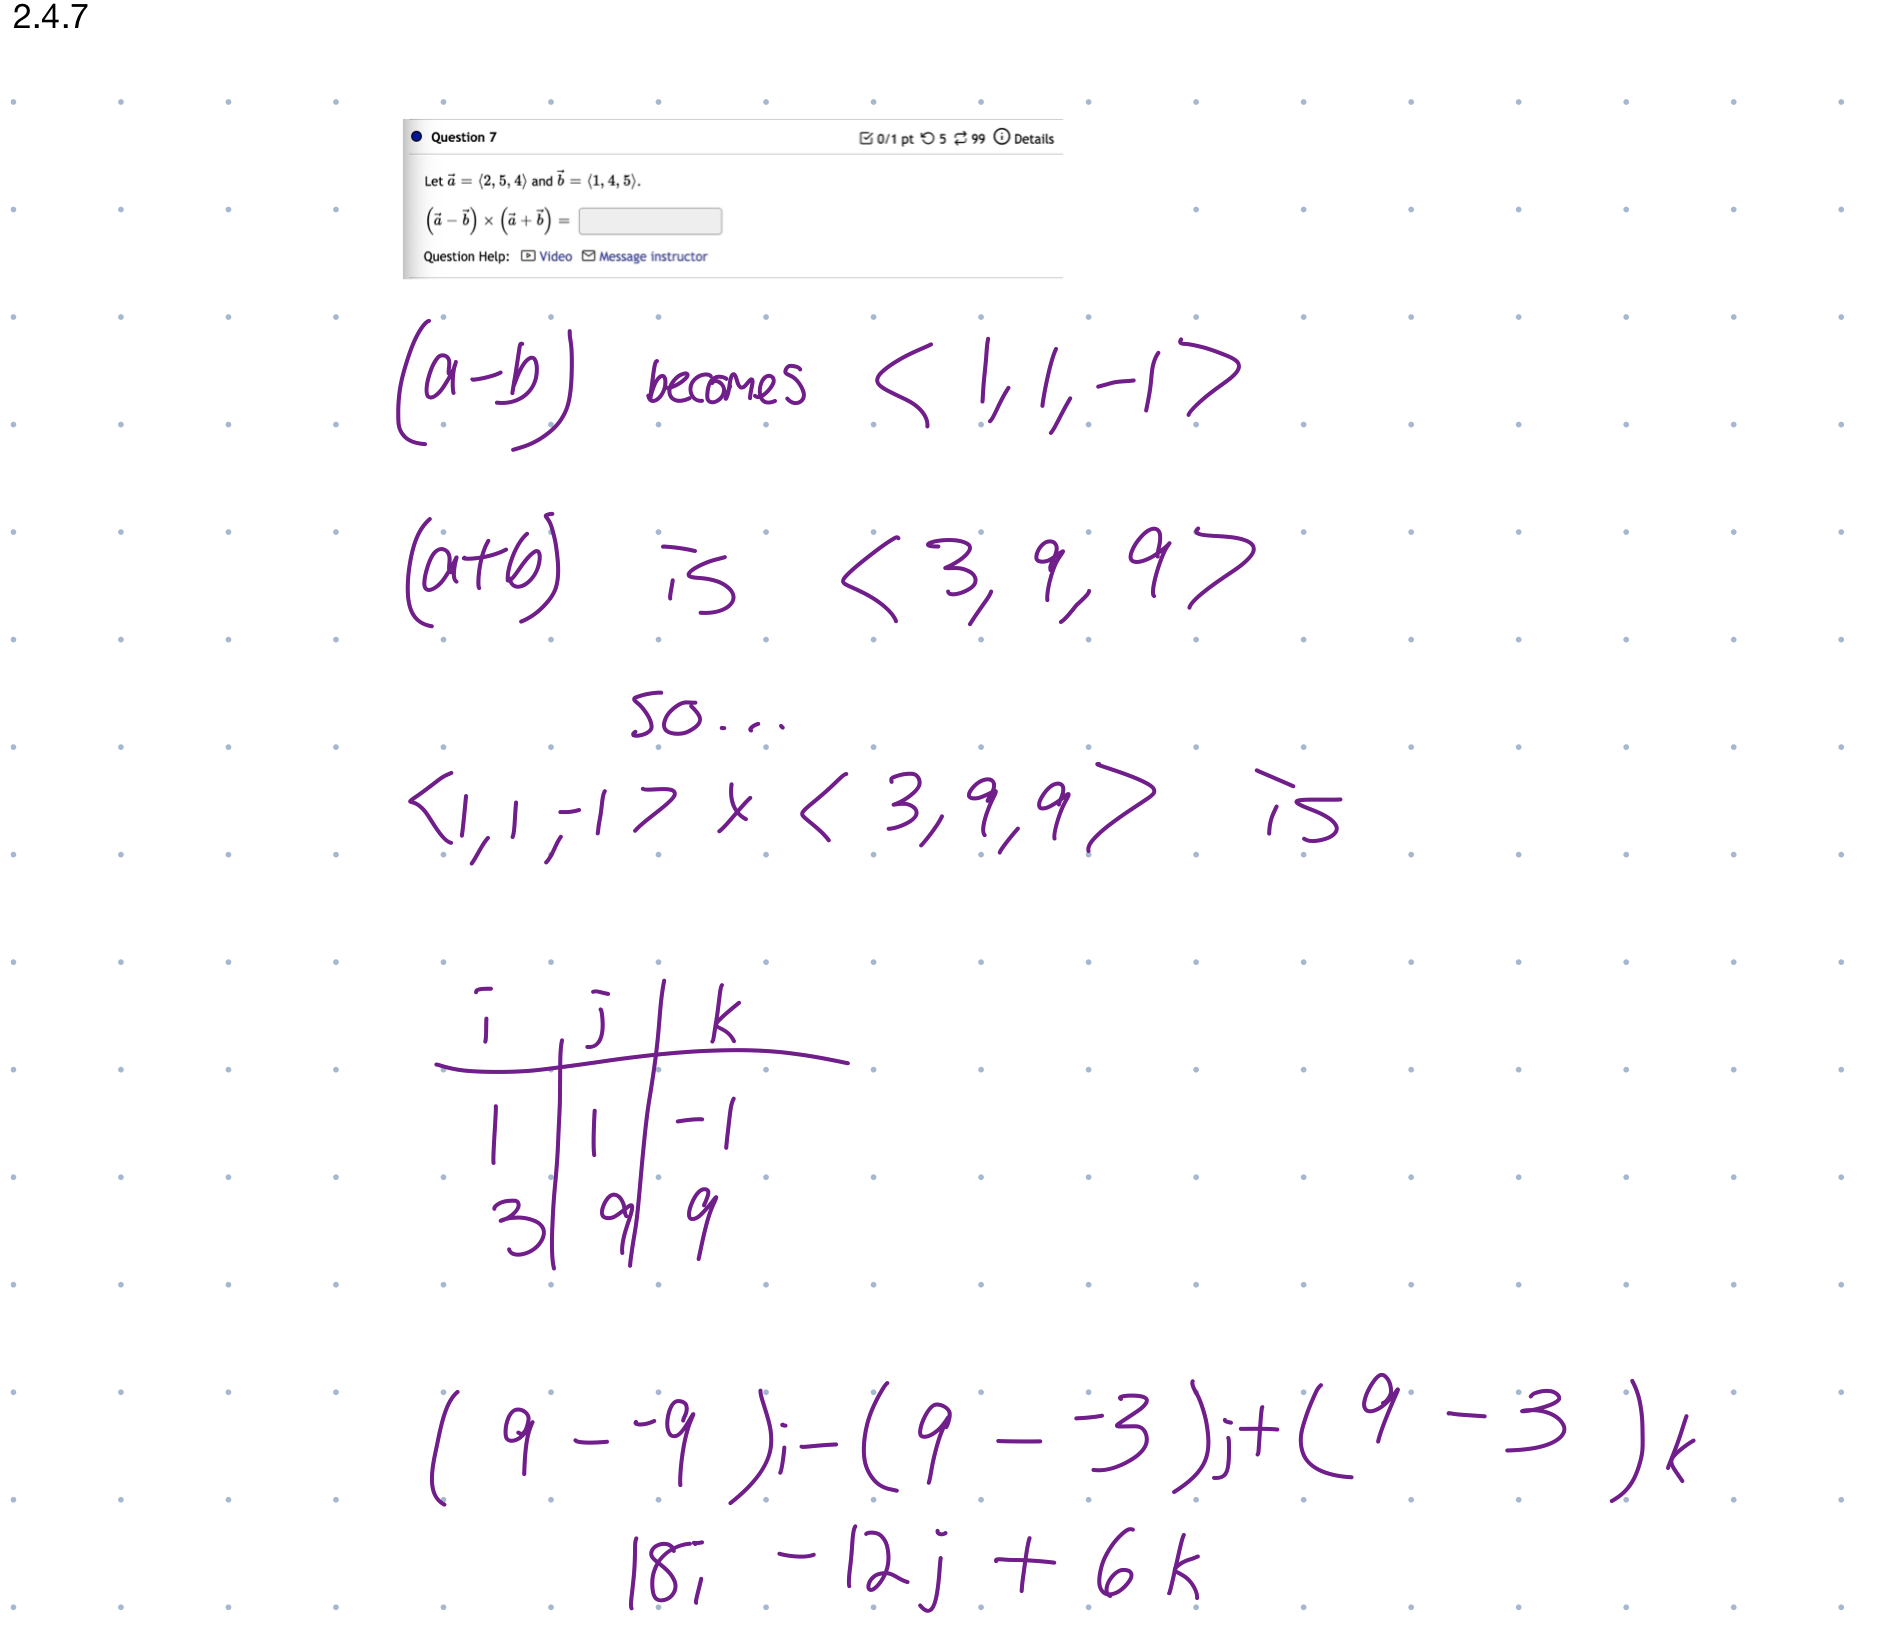 2.4.7
Question 7 0/1 pt 5 99 Details
Let a⃗ = ⟨2, 5, 4⟩ and b⃗ = ⟨1, 4, 5⟩.
(a⃗ − b⃗) × (a⃗ + b⃗) =
Question Help: Video Message instructor
(a-b) becomes <1, 1, -1>
(a+b) is <3, 9, 9>
so...
<1, 1, -1> x <3, 9, 9> is
i j k
1 1 -1
3 9 9
(9 - -9)i - (9 - -3)j + (9 - 3)k
18i - 12j + 6k